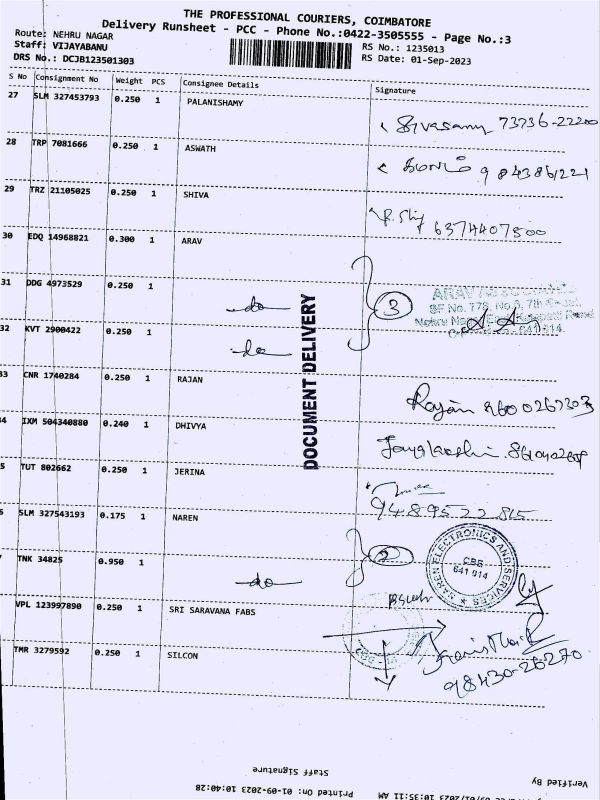 THE PROFESSIONAL COURIERS, COIMBATORE
Delivery Runsheet - PCC - Phone No.:0422-3505555 - Page No.:3
Route: NEHRU NAGAR
Staff: VIJAYABANU RS No.: 1235013
DRS No.: DCJB123501303 RS Date: 01-Sep-2023
S No Consignment No Weight PCS Consignee Details Signature
27 SLM 327453793 0.250 1 PALANISHAMY
Sivasamy 73736-22200
28 TRP 7081666 0.250 1 ASWATH
29 TRZ 21105025 0.250 1 SHIVA
6374407500
30 EDQ 14968821 0.300 1 ARAV
31 DDG 4973529 0.250 1 -do- 3
32 KVT 2900422 0.250 1 -do-
DOCUMENT DELIVERY
33 CNR 1740284 0.250 1 RAJAN
Rajan
4 IXM 504340880 0.240 1 DHIVYA
5 TUT 802662 0.250 1 JERINA
9489522815
6 SLM 327543193 0.175 1 NAREN
NAREN ELECTRONICS AND SERVICES
CBE
641 014
TNK 34825 0.950 1 -do- 2
VPL 123997890 0.250 1 SRI SARAVANA FABS
TMR 3279592 0.250 1 SILCON
98430-26270
Staff Signature
Verified By
Printed On: 01-09-2023 10:40:28
2023 10:35:11 AM